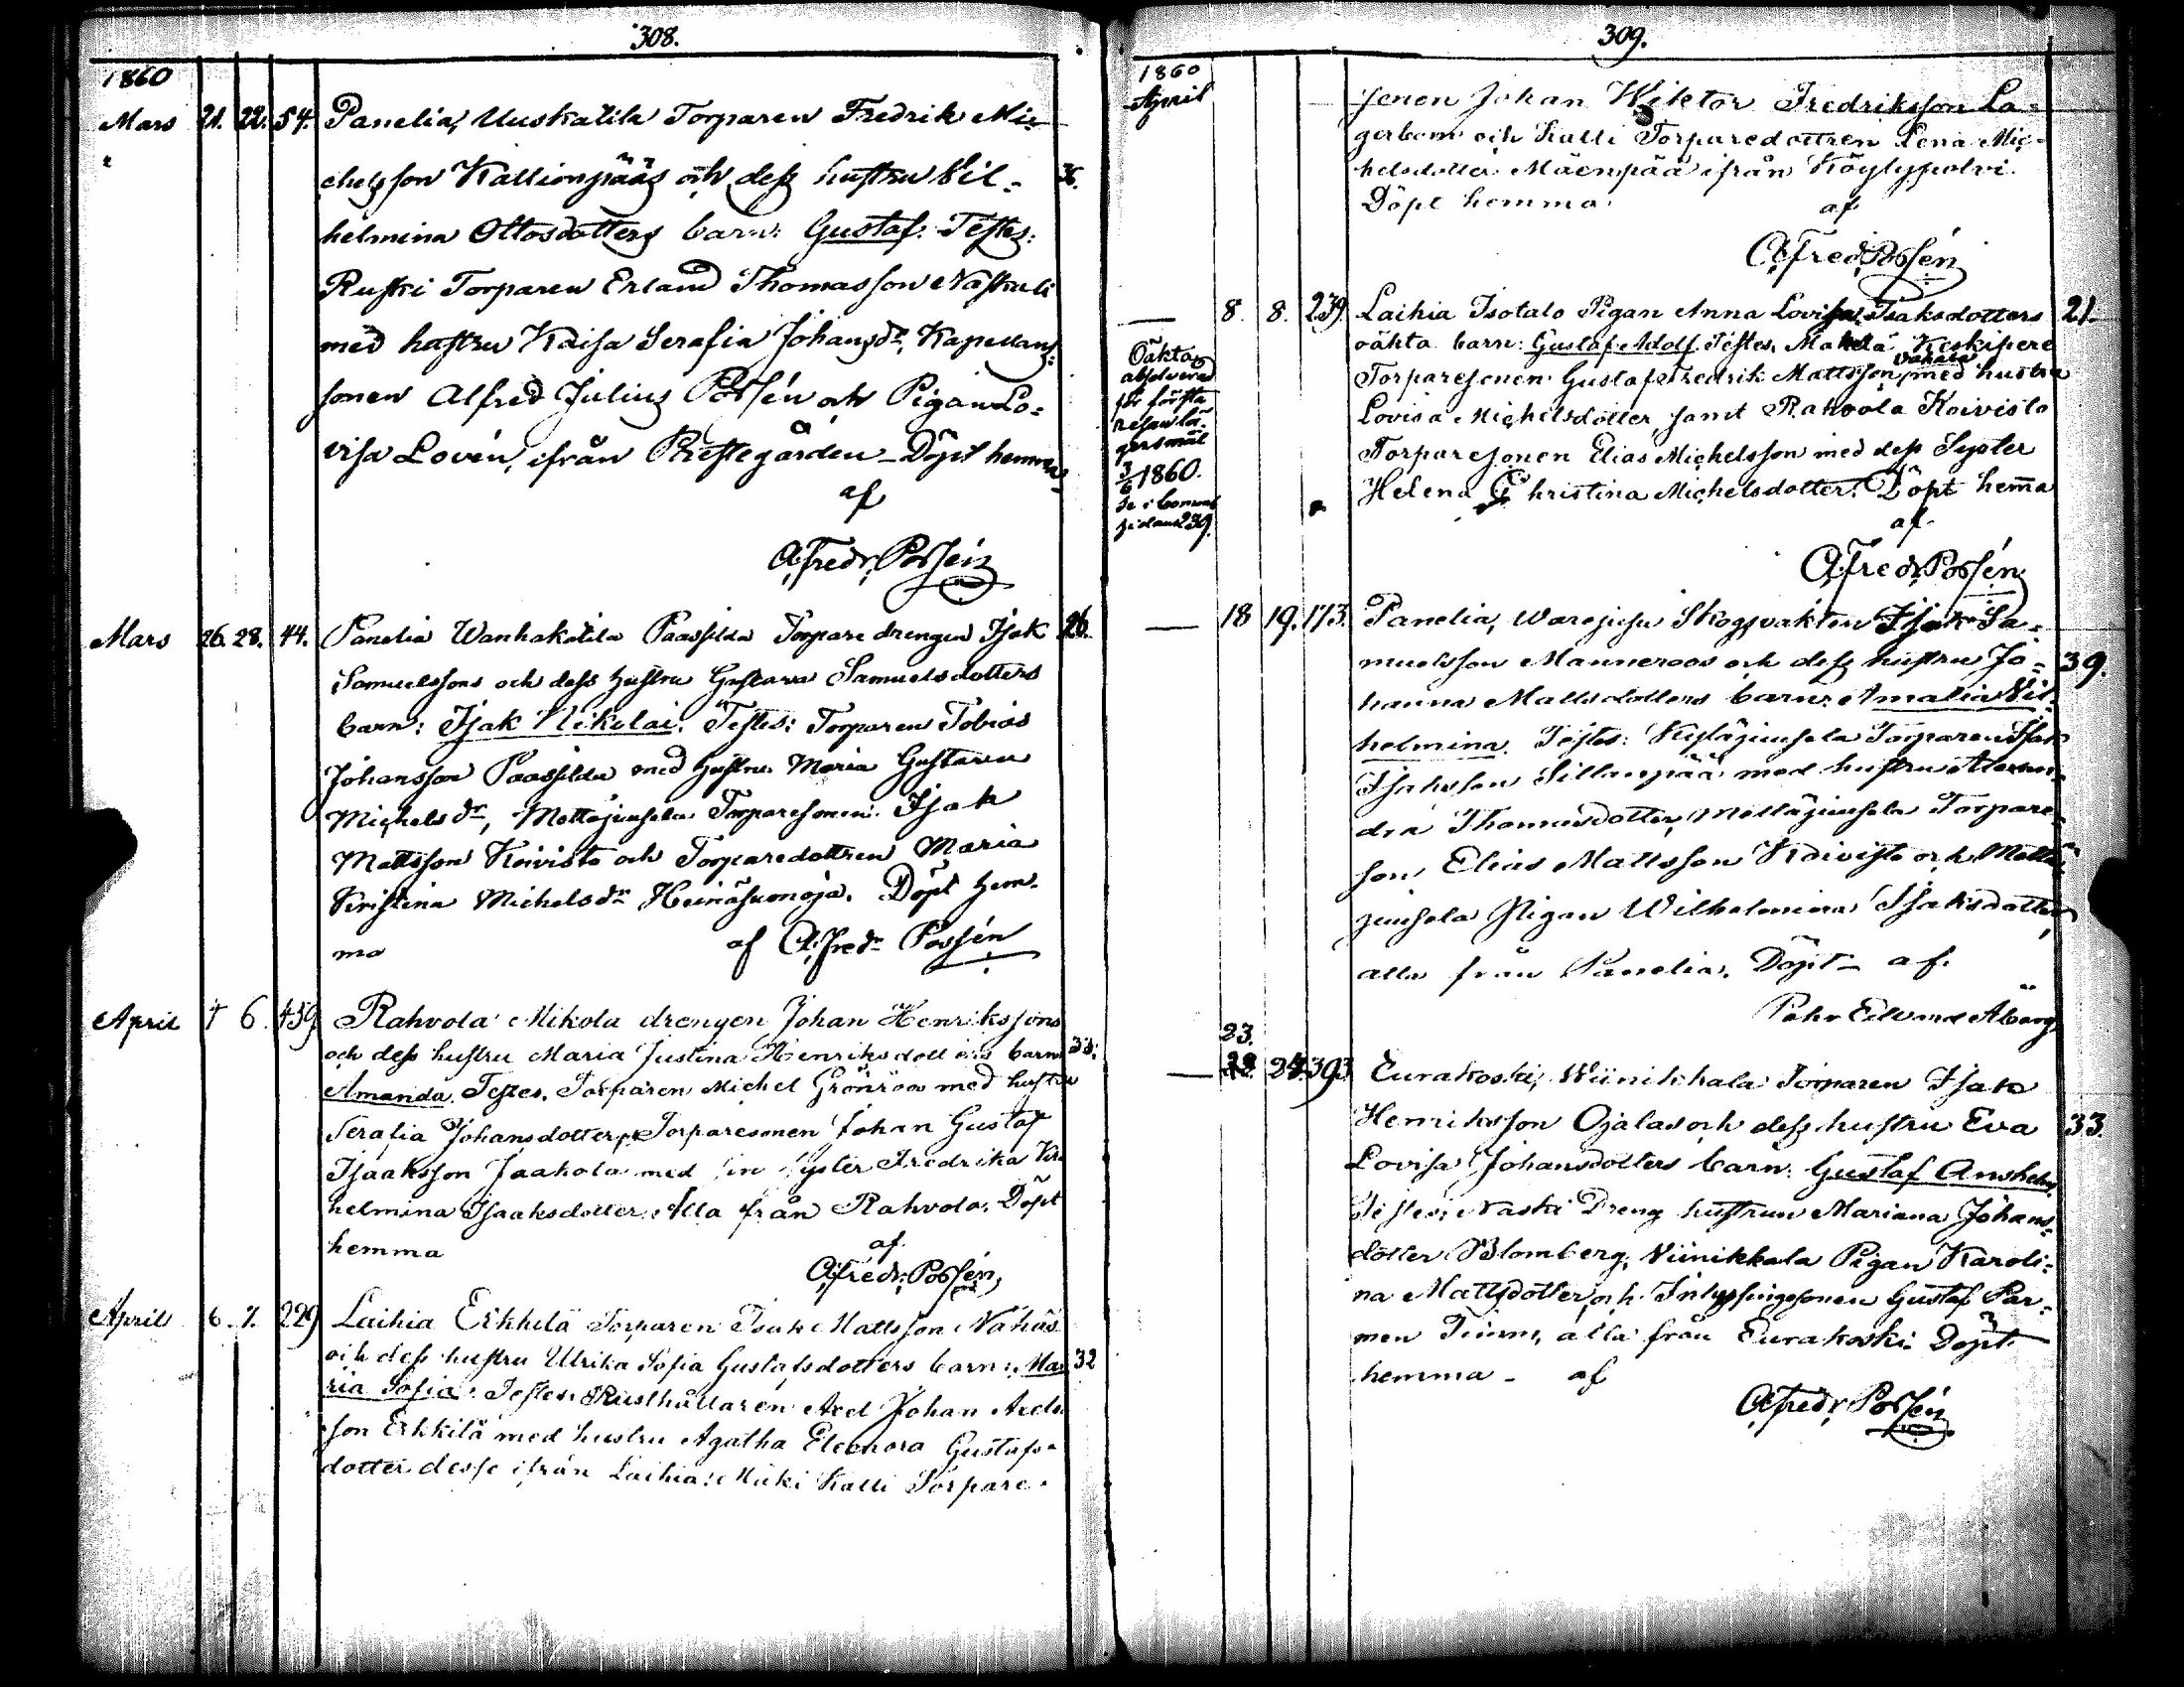 308.
1860
Mars 21. 22. 54. Panelia, Uuskatila Torparen Fredrik Mi-
" chelsson Kallionpääs och dess hustru Vil- 36.
helmina Ottosdotters barn: Gustaf. Testes:
Ruski Torparen Erland Thomasson Naskali
med hustru Kaisa Serafia Johansdr, Kapellans-
sonen Alfred Julius Possén och Pigan Lo-
visa Lovén, ifrån Prestegården - Döpt hemma
af
A. Fredr. Possén
Mars 26. 28. 44. Panelia Wanhakatila Paassilda Torpare drengen Isak 26.
Samuelssons och dess hustru Gustava Samuelsdotters
barn: Isak Nikolai. Testes: Torparen Tobias
Johansson Paassilda med hustru Maria Gustava
Michelsdr, Mattäjuusela Torparesonen Isak
Mattsson Koivisto och Torparedottren Maria
Kristina Michelsdr Heinäsuonoja. Döpt hem-
ma af A. Fredr Possén
April 4 6. 459 Rahvola Mikola drengen Johan Henrikssons
och dess hustru Maria Justina Henriksdotters barn 33.
Amanda. Testes. Torparen Michel Grönroos med hustru
Serafia Johansdotter, Torparesonen Johan Gustaf
Isaaksson Jaakola med sin Syster Fredrika Vil
helmina Isaaksdotter. Alla från Rahvola. Döpt
hemma af
A. Fredr. Possén
April 6. 7. 229 Laihia Erkkilä Torparen Isak Mattsson Nahás
och dess hustru Ulrika Sofia Gustafsdotters barn: Ma- 32
ria Sofia. Testes: Rusthållaren Axel Johan Axels
son Erkkilä med hustru Agatha Eleonora Gustafs-
dotter desse ifrån Laihia: Micki Kalli Torpare-
309.
1860
April sonen Johan Wiktor Fredriksson La-
gerbom och Kalli Torparedottren Lena Mic-
helsdotter Mäenpää ifrån Köylypolvi.
Döpt hemma af
A. Fredr. Possén
— 8. 8. 239. Laihia Isotalo Pigan Anna Lovisa Isaksdotters 21.
oäkta barn: Gustaf Adolf. Testes, Keskipere
Torparesonen Gustaf Fredrik Mattsson, med hustru
Lovisa Michelsdotter, samt Rahvola Koivisto
Torparesonen Elias Michelsson med dess Syster
Helena Christina Michelsdotter. Döpt hemma
af
A. Fredr. Possén
Oäkta
absolverad
för första
resan lä-
gersmål
3/6 1860.
Se i
sidan 239.
— 18 19. 173. Panelia, Skogsvakten Isak Sa-
muelsson Manneroos och dess hustru Jo- 39.
hanna Mattsdotters barn: Amalia Vil-
helmina. Testes: Kyläjuusela Torparen Isak
Isaksson Sillanpää med hustru Alexan-
dra Thomasdotter, Mattäjuusela Torpare-
son Elias Mattsson Koivisto och Mattä-
juusela Pigan Wilhelmina Isaksdotter,
alla från Panelia. Döpt - af.
Pehr Edvard Åberg
23.
— 24. 393 Eurakoski, Wiinikkala Torparen Isak
Henriksson Ojalas och dess hustru Eva 33.
Lovisa Johansdotters barn: Gustaf Anshelm.
Testes: Naski Dreng hustrun Mariana Johans-
dotter Blomberg, Viinikkala Pigan Karoli-
na Mattsdotter och Inhyssingesonen Gustaf Par-
men Tiinus, alla från Eurakoski. Döpt
hemma - af
A. Fredr. Possén